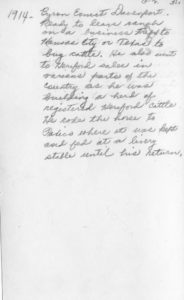 1914 - Byron Ernest Davenport.
Ready to leave ranch
on a business trip to
Kansas City or Texas to
buy cattle. He also went
to Hereford sales in
various parts of the
country as he was
building a herd of
registered Hereford cattle
He rode the horse to
where it was kept
and fed at a livery
stable until his return.